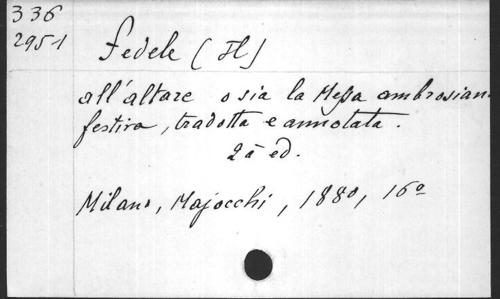 336
295-1
Fedele (Il)
all'altare o sia la Messa ambrosian
festiva, tradotta e annotata.
2a ed.
Milano, Majocchi, 1880, 16o